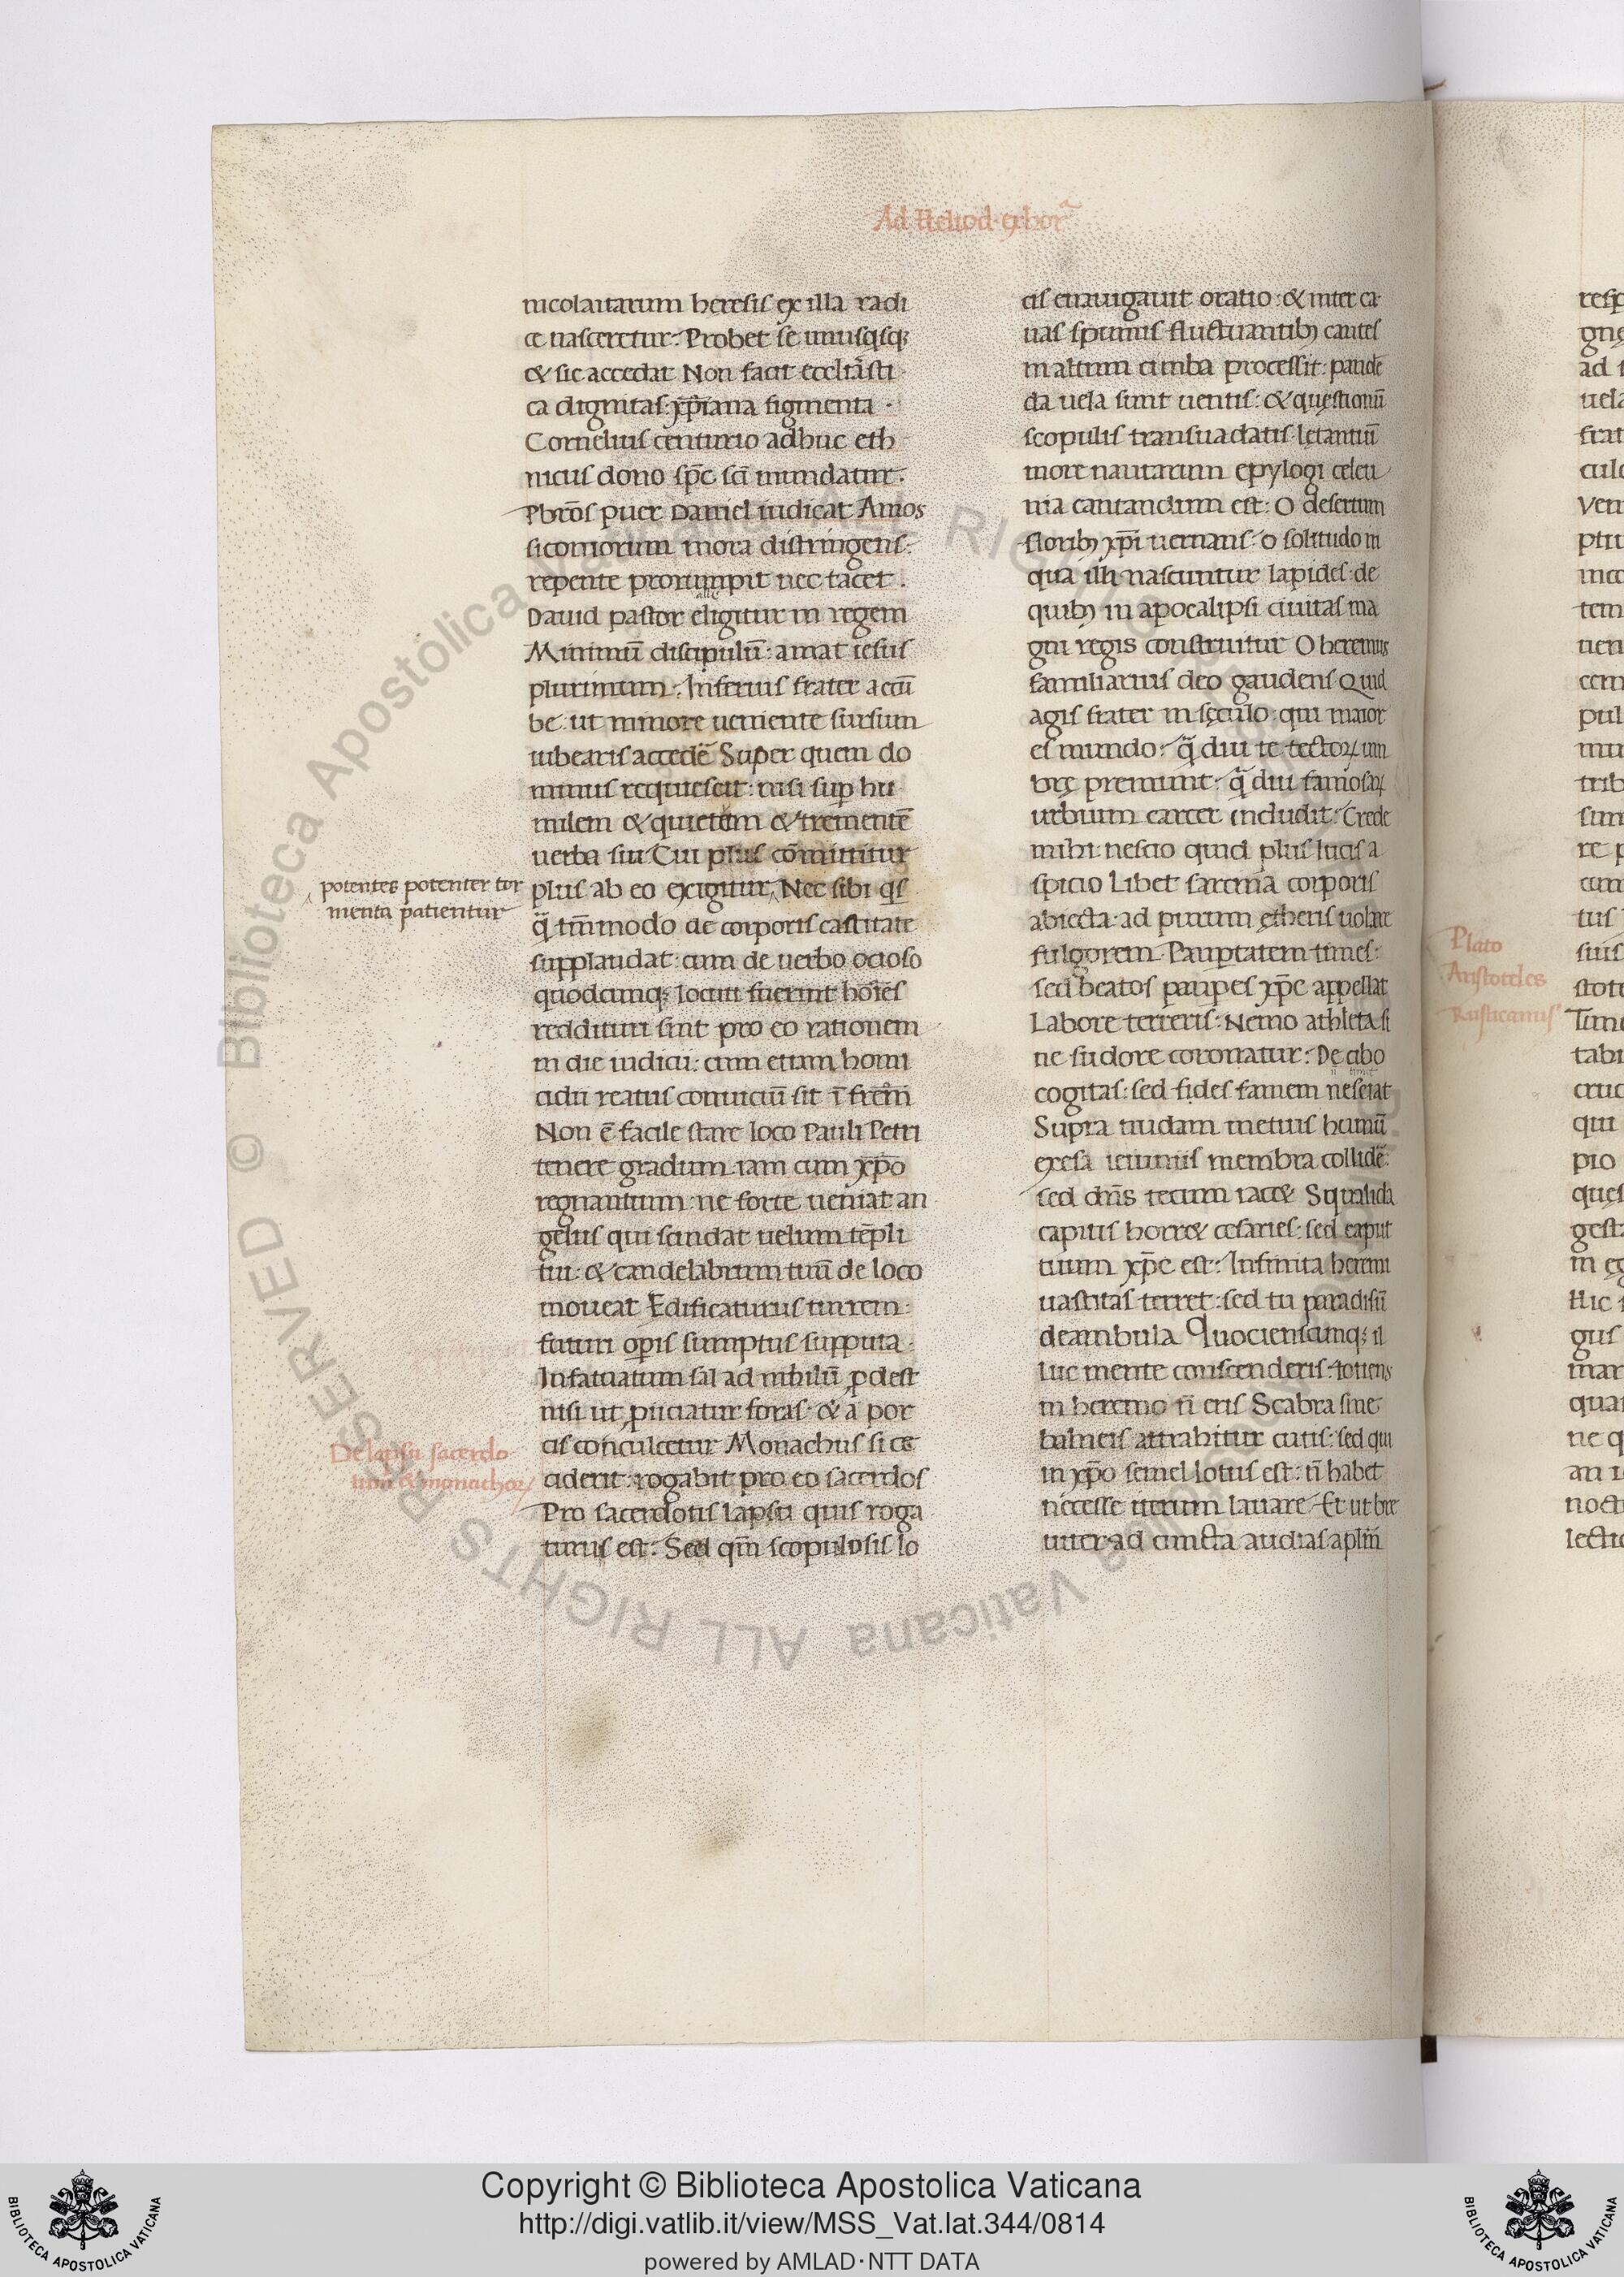 Ad Heliod. exhorᵗ
nicolaitarum heresis ex illa radi
ce nasceretur. Probet se unusqsq;
& sic accedat Non facit eccl̄iasti
ca dignitas: xp̄iana figmenta.
Cornelius centurio adhuc eth
nicus dono sp̄c sc̄i mundatur.
Pbrōs puer Daniel iudicat Amos
sicomorum mora distringens:
repente prorumpit nec tacet.
Dauid pastor eligitur in regem
Minimū discipulū: amat iesus
plurimum. Inferius frater accū
be: ut minore ueniente sursum
iubearis accedē Super quem do
minus requiescit: nisi sup hu
milem & quietem & trementē
uerba sua Cui plus cōmittitur
potentes potenter tor
menta patientur
plus ab eo exigitur, Nec sibi qs
q̄ tm̄modo de corporis castitate
supplaudat: cum de uerbo ocioso
quodcunq; locuti fuerint hoīes
reddituri sint pro eo rationem
in die iudicii: cum etiam homi
cidii reatus conuiciū sit ī frēm
Non ē facile stare loco Pauli Petri
tenere gradum iam cum xp̄o
regnantium: ne forte ueniat an
gelus qui scindat uelum tēpli
tui: & candelabrum tuū de loco
moueat Edificaturus turrem:
futuri opis sumptus supputa.
Infatuatum sal ad nihilū pdest
nisi ut piiciatur foras: & a por
cis conculcetur Monachus si ce
De lapsu sacerdo
tum & monachoꝝ
ciderit: rogabit pro eo sacerdos
Pro sacerdotis lapsu quis roga
turus est: Sed qm̄ scopulosis lo
cis enauigauit oratio: & inter ca
uas spumis fluctuantibꝫ cautes
in altum cimba processit: pandē
da uela sunt uentis: & questionū
scopulis transuadatis letantiū
more nautarum epylogi celeu
ma cantandum est: O desertum
floribꝫ xp̄i uernans: o solitudo in
qua illi nascuntur lapides: de
quibꝫ in apocalipsi ciuitas ma
gni regis construitur O heremus
familiarius deo gaudens Quid
agis frater in sęculo: qui maior
es mundo: q̄ diu te tectoꝝ um
brę premunt: q̄ diu famosaꝝ
urbium carcer includit: Crede
mihi nescio quid plus lucis a
spicio Libet sarcina corporis
abiecta: ad purum ętheris uolare
fulgorem Paupertatem times:
sed beatos paupes xp̄c appellat
Labore terreris: Nemo athleta si
ne sudore coronatur: De cibo
cogitas: sed fides famem ne sciat
Supra nudam metuis humū
exesa ieiuniis membra collidē:
sed dn̄s tecum iacet Squalida
capitis horret cesaries: sed caput
tuum xp̄c est: Infinita heremi
uastitas terret: sed tu paradisū
deambula Quocienscunq; il
luc mente conscenderis: totiens
in heremo n̄ eris Scabra sine
balneis attrahitur cutis: sed qui
in xp̄o semel lotus est: n̄ habet
necesse iterum lauare Et ut bre
uiter ad cuncta audias aplm̄
Plato
Aristoteles
Rusticanus
Copyright © Biblioteca Apostolica Vaticana
http://digi.vatlib.it/view/MSS_Vat.lat.344/0814
powered by AMLAD·NTT DATA
BIBLIOTECA APOSTOLICA VATICANA
BIBLIOTECA APOSTOLICA VATICANA